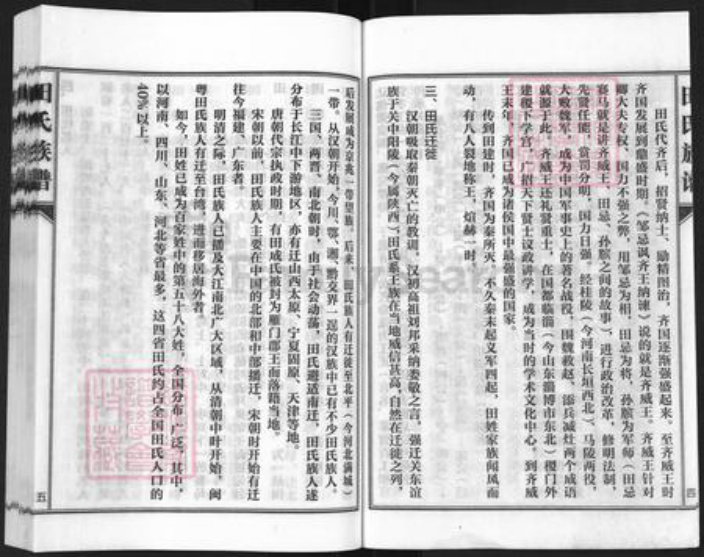 田氏族谱
田氏代齐后，招贤纳士、励精图治，齐国逐渐强盛起来。至齐威王时
齐国发展到鼎盛时期。《邹忌讽齐王纳谏》说的就是齐威王。齐威王针对
卿大夫专权、国力不强之弊，用邹忌为相，田忌为将，孙膑为军师（田忌
赛马就是讲齐威王、田忌、孙膑之间的故事），进行政治改革，修明法制，
先贤任能，赏罚分明，国力日强。经桂陵（今河南长垣西北）、马陵两役，
大败魏军，成为中国军事史上的著名战役，围魏救赵、添兵减灶两个成语
就源于此。齐威王还礼贤重士，在国都临淄（今山东淄博市东北）稷门外
建稷下学宫，广招天下贤士议政讲学，成为当时的学术文化中心。到齐威
王末年，齐国已成为诸侯国中最强盛的国家。
传到田建时，齐国为秦所灭。不久秦末起义军四起，田姓家族闻风而
动，有八人裂地称王，煊赫一时。
三、田氏迁徙
汉朝吸取秦朝灭亡的教训，汉初高祖刘邦采纳娄敬之言，强迁关东谊
族于关中阳陵（今属陕西）。田氏系王族在当地威信甚高，自然在迁徙之列，
四
后发展成为京兆一带望族。后来，田氏族人有迁徙至北平（今河北满城）
一带。从汉朝开始，今川、鄂、湘、黔交界一逞的汉族中已有不少田氏族人。
三国、两晋、南北朝时，由于社会动荡，田氏避适南迁，田氏族人遂
分布于长江中下游地区，亦有迁山西太原、宁夏固原、天津等地。
唐朝代宗执政时期，有田咸氏被封为雁门郡王而落籍当地。
宋朝以前，田氏族人主要在中国的北部和中部搬迁，宋朝时开始有迁
往今福建、广东者。
明清之际，田氏族人已播及大江南北广大区域，从清朝中叶开始，闽
粤田氏族人有迁至台湾，进而移居海外者。
如今，田姓已成为百家姓中的第五十八大姓，全国分布广泛，其中，
以河南、四川、山东、河北等省最多，这四省田氏约占全国田氏人口的
40%以上。
田氏族谱
五